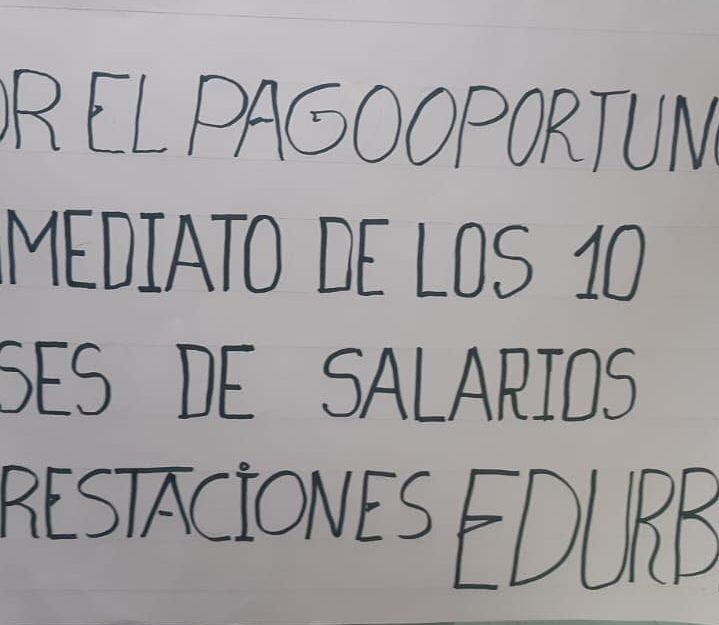 OR EL PAGO OPORTUNO
MEDIATO DE LOS 10
SES DE SALARIOS
RESTACIONES EDURB